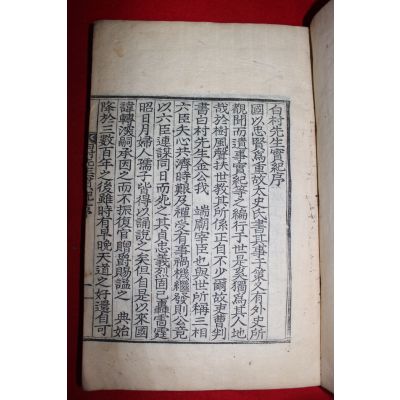 白村先生實紀序
國以忠賢爲重故太史氏書其事于策又有外史所
觀聞而遺事實紀等之編行于世是奚獨爲其人地
哉於樹風聲扶世敎其所係正自不少爾故吏曹判
書白村先生金公我 端廟宰臣也與世所稱三相
六臣矢心共濟時艱及禪受有事禍機繼發則公竟
以六臣連謀同日而死之其貞忠義烈固已轟雷霆
昭日月婦人孺子皆得以誦說之矣但自是以來國
諱轉深嗣承因之而不振復官贈爵賜諡之 典始
降於三數百年之後雖時有早晚天道之好還自可